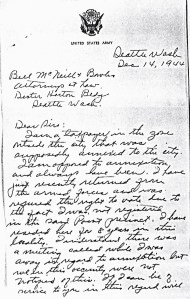 UNITED STATES ARMY
Seattle Wash.
Dec 14, 1944
Bell McNeill & Bowles
Attorneys at Law
Dexter Horton Bldg
Seattle Wash.
Dear Sirs:
I am a taxpayer in the zone
outside the city that was
supposedly annexed to the city.
I am opposed to annexation
and always have been. I have
just recently returned from
the armed forces and was
refused the right to vote due to
the fact I was not registered
in the precinct. I have
resided here for 8 years in this
locality. I understand there was
a meeting held while I was
away in regard to annexation but
we in this vicinity were not
notified of this. If I can be of
service to you in this regard